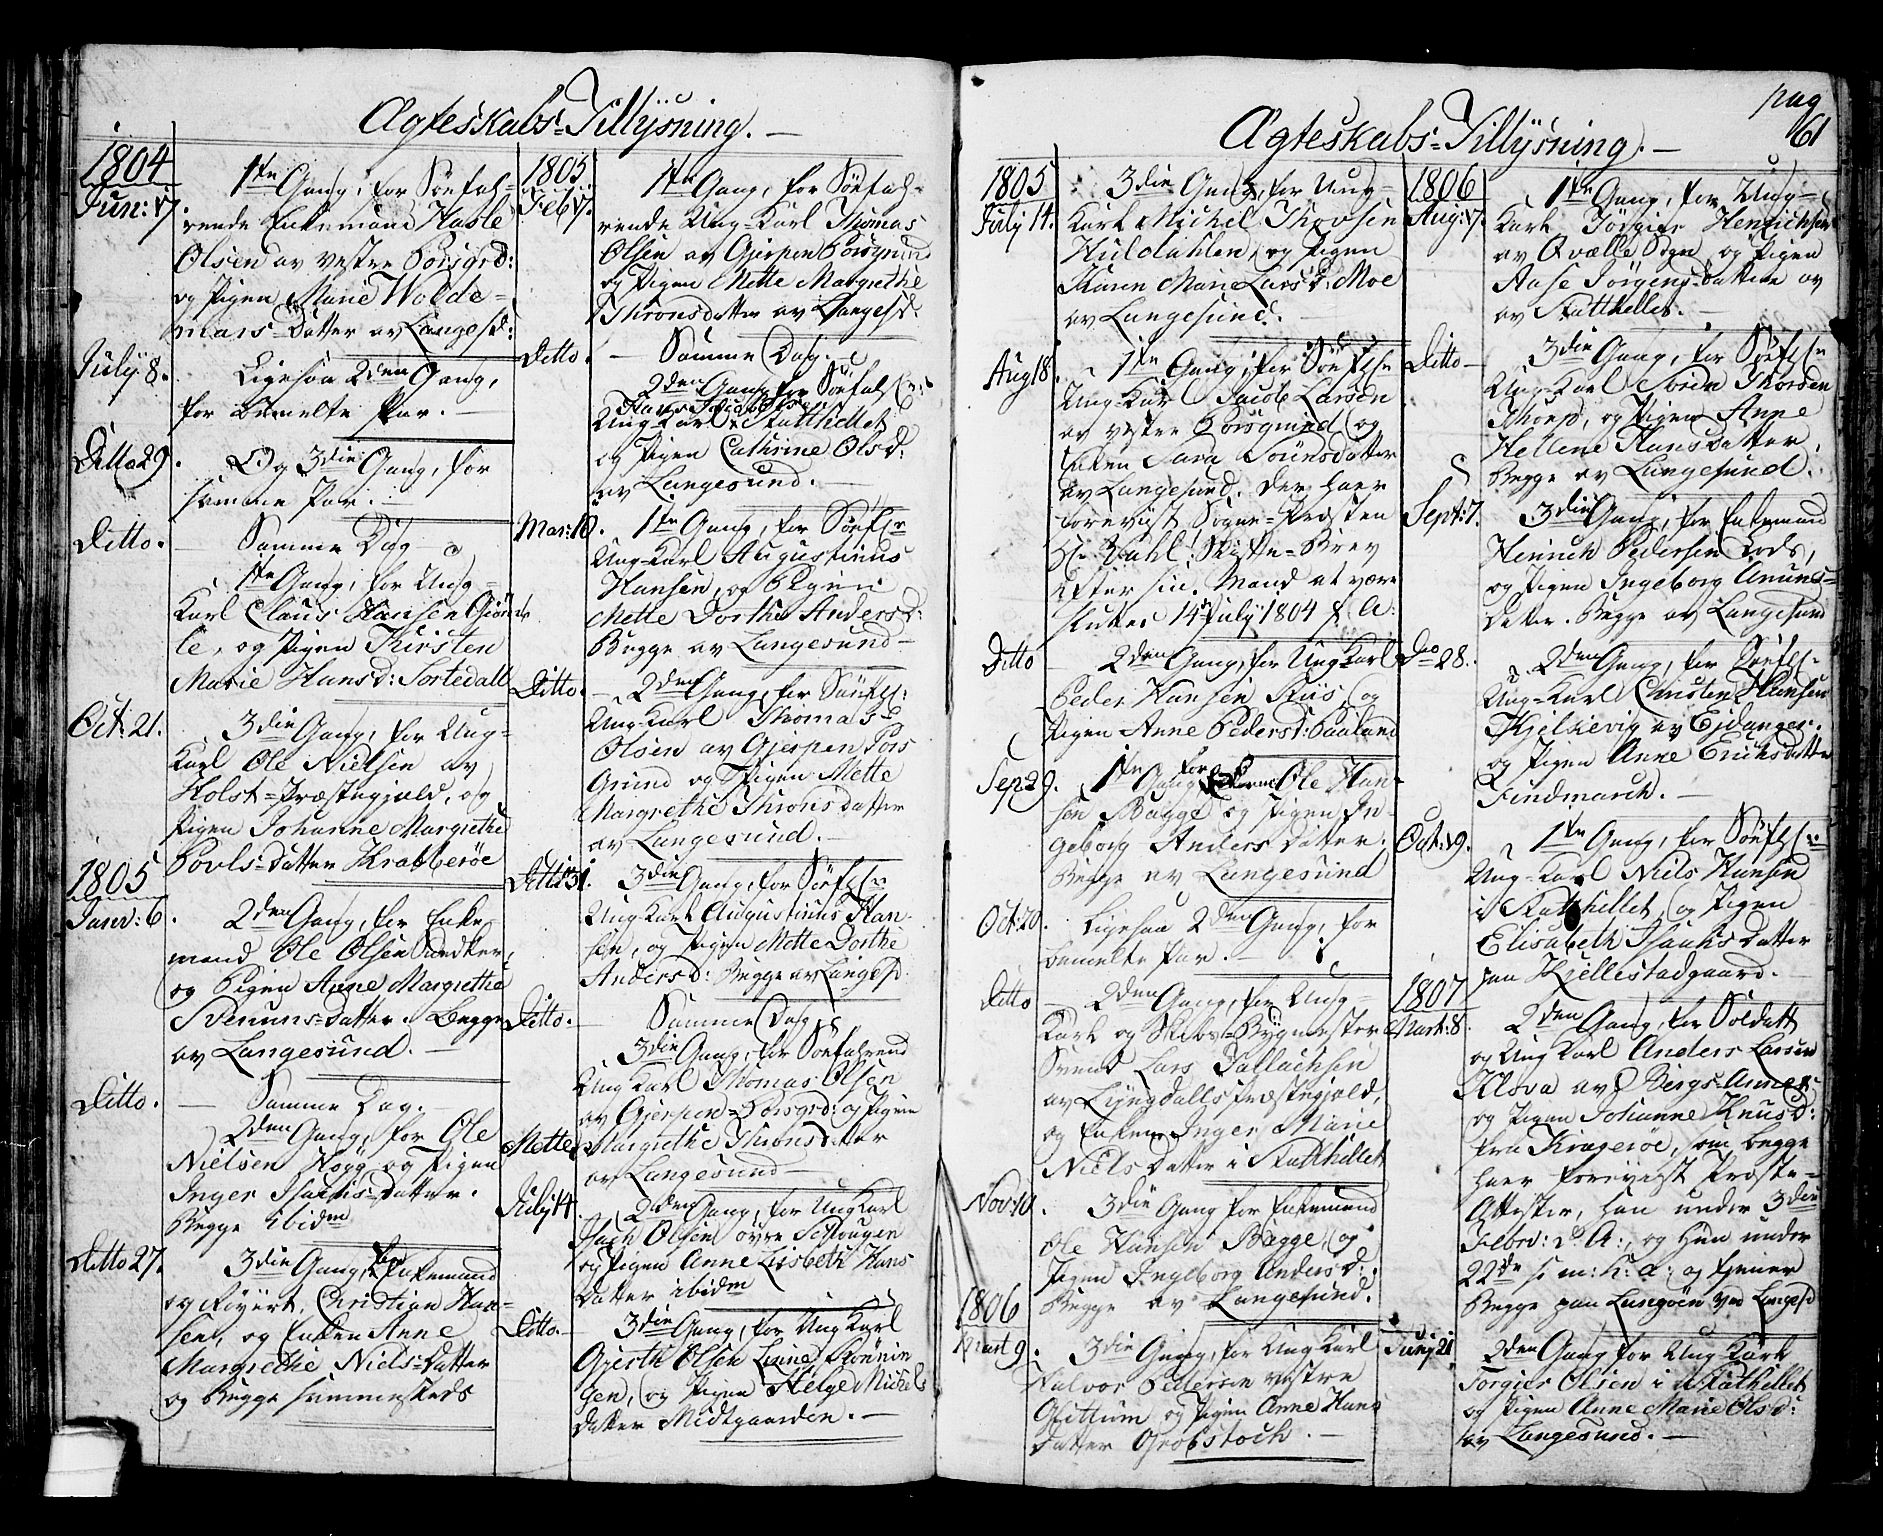 Ægteskabs-Tillysning. —
1804
Jun: 17. 1ste Gang, for Søefah-
rende Enkemand Hasle
Olsen av vestre Porsgrd:
og Pigen Marie Wolde-
mars-Datter av Langesd:
July 8. Ligesaa 2den Gang,
for bemelte Par. —
Ditto 29. Og 3die Gang, for
samme Par.
Ditto. — Samme Dag —
1ste Gang, for Ung-
Karl Claus Hansen
og Pigen Kirsten
Marie Hansd: Sortedall
Oct: 21. 3die Gang, for Ung-
Karl Ole Nielsen av
Holst-Præstegjæld, og
Pigen Johanne Margrethe
Povls-Datter Krabberøe
1805
Janv: 6. 2den Gang, for Enke-
mand Ole Olsen
og Pigen Anne Margrethe
Svenuns-Datter. Begge
av Langesund. —
Ditto. — Samme Dag. —
2den Gang, for Ole
Nielsen Høyg og Pigen
Inger Isachs-Datter.
Begge ibidm
Ditto 27. 3die Gang, for Enkemand
og Røyert, Christian Han-
sen, og Enken Anne
Margrethe Niels-Datter
og Begge sammesteds
1805
Feb 17. 1ste Gang, for Søefah-
rende Ung-Karl Thomas
Olsen av Gjerpen Porsgrund
og Pigen Mette Margrethe
Thronsdatter av Langesd.
Ditto. — Samme Dag.
2den Gang for Søefah
Hans Jacobsen
Ung-Karl Statthellet
og Pigen Cathrine Olsd:
av Langesund. —
Mar: 10. 1ste Gang, for Søefhr
Ung-Karl Augustinus
Hansen, og Pigen
Mette Dorthe Andersd:
Begge av Langesund —
Ditto. — 2den Gang, for Søefhr:
Ung-Karl Thomas
Olsen av Gjerpen Pors
Grund og Pigen Mette
Margrethe Throns Datter
av Langesund. —
Ditto 31. 3die Gang, for Søefhr
Ung-Karl Augustinus Han-
sen, og Pigen Mette Dorthe
Andersd: Begge av Langesd.
Ditto. — Samme Dag
3die Gang, for Søefahrend
Ung Karl Thomas Olsen
av Gjerpen-Porsgrd: og Pigen
Mette Margrethe Thronsdatter
av Langesund —
July 14. 2den Gang, for Ung Karl
Isach Olsen øvre
og Pigen Anne Lisbeth Hans
Datter ibidm
Ditto. — 3die Gang, for Ung Karl
Gjerth Olsen Lunde
og Pigen Helge Michels
Datter Midtgaarden. —
pag
61
Ægteskabs-Tillysning. —
1805
July 14. 3die Gang, for Ung-
Karl Michel Thovsen
Huldahlen, og Pigen
Karen Marie Larsd: Moe
av Langesund. —
Aug 18. 1ste Gang, for Søefhr
Ung-Karl Jacob Larsen
av vestre Porsgrund og
Enken Sara Sørensdatter
av Langesund. Der haer
forevist Sogne-Præsten
Hr: Skifte-Brev
efter sin Mand at være
sluttet 14de July 1804
Ditto — 2den Gang, for Ung Karl
Peder Hansen Riis, og
Pigen Anne Pedersd:
Sep 29. 1ste Gang for Enkem Ole Han-
sen Bagge og Pigen In-
geborg Anders Datter.
Begge av Langesund
Oct: 20. Ligesaa 2den Gang, for
bemelte Par. —
Ditto — 2den Gang, for Ung-
Karl og Skibs-Bygmester
Svend Lars Tallachsen
av Lyngdalls Præstegjæld,
og Enken Inger Marie
Niels Datter i Statthellet
Nov: 10. 3die Gang for Enkemand
Ole Hansen Bagge, og
Pigen Ingeborg Andersd:
Begge av Langesund.
1806
Mart 9. 3die Gang, for Ung Karl
Halvor Pedersen vestre
og Pigen Anne Hans
Datter Grobstoch. —
1806
Aug: 17. 1ste Gang, for Ung-
Karl Jørgen Henrichsen
av Qvælle Sogn og Pigen
Aase Jørgens-Datter av
av Statthellet. —
Ditto — 3die Gang, for Søefhr
Ung-Karl Soren Thorsen
Thorp, og Pigen Anne
Hellene Hansdatter,
Begge av Langesund.
Sept: 7. 3die Gang, for Enkemand
Heinrich Pedersen Lods,
og Pigen Ingeborg Anuns-
Datter. Begge av Langesund
Do 28. 2den Gang, for Søefhr
Ung-Karl Christen Hansen
Kjelkevig av Eidanger.
og Pigen Anne Erichsdatter
Findmarch. —
Oct: 19. 1ste Gang, for Søefhr:
Ung-Karl Niels Hansen
i Statthellet, og Pigen
Elisabeth Isachs Datter
paa Kjellestadgaard. —
1807
Mart: 8. 2den Gang, for Soldatt
og Ung Karl Anders Larsen
Klova av Bergs-Annex:
og Pigen Johanne Knusd:
fra Kragerøe, som begge
haer forevist Præste-
Attester, han under 3die
Febrv: d. A:, og Hun under
22de s: m: h: a: og tjener
Begge paa Langøen ved Langesd
Junj 21. 2den Gang for Ung Karl
Torgier Olsen i Stathellet
og Pigen Anne Marie Olsd:
av Langesund. —